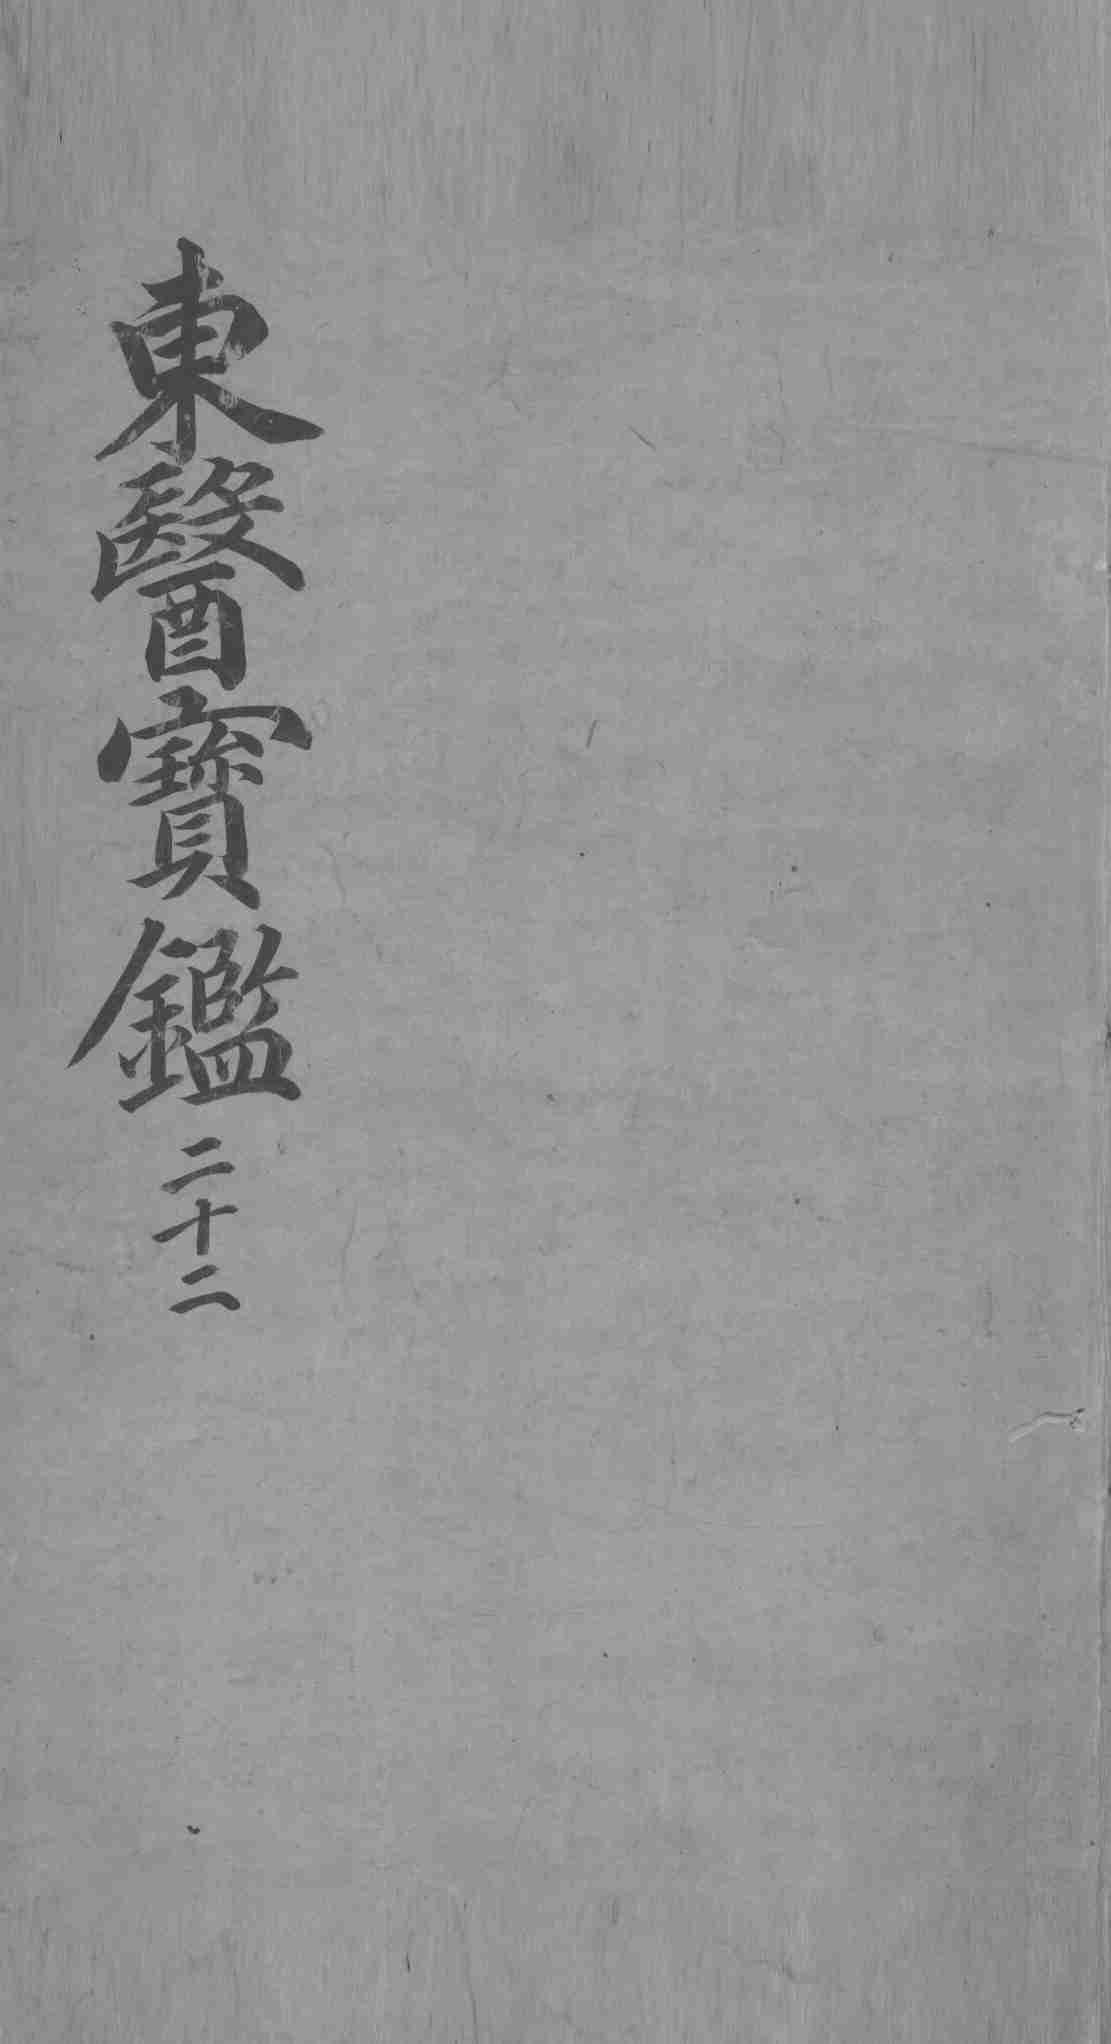 東醫寶鑑 二十二